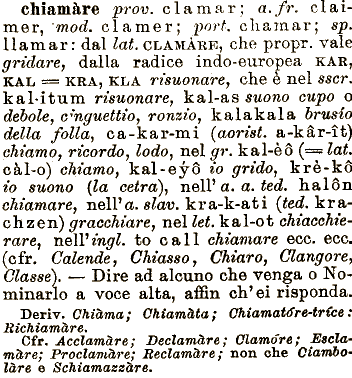 chiamàre prov. clamar; a. fr. clai-
mer, mod. clamer; port. chamar; sp.
llamar: dal lat. CLAMÀRE, che propr. vale
gridare, dalla radice indo-europea KAR,
KAL = KRA, KLA risuonare, che è nel sscr.
kal-itum risuonare, kal-as suono cupo o
debole, cinguettio, ronzio, kalakala brusio
della folla, ca-kar-mi (aorist. a-kâr-ît)
chiamo, ricordo, lodo, nel gr. kal-èô (= lat.
càl-o) chiamo, kal-eýô io grido, krè-kô
io suono (la cetra), nell' a. a. ted. halôn
chiamare, nell' a. slav. kra-k-ati (ted. kra-
chzen) gracchiare, nel let. kal-ot chiacchie-
rare, nell' ingl. to call chiamare ecc. ecc.
(cfr. Calende, Chiasso, Chiaro, Clangore,
Classe). — Dire ad alcuno che venga o No-
minarlo a voce alta, affin ch' ei risponda.
Deriv. Chiàma; Chiamàta; Chiamatóre-tríce:
Richiamàre.
Cfr. Acclamàre; Declamàre; Clamóre; Escla-
màre; Proclamàre; Reclamàre; non che Ciambo-
làre e Schiamazzàre.